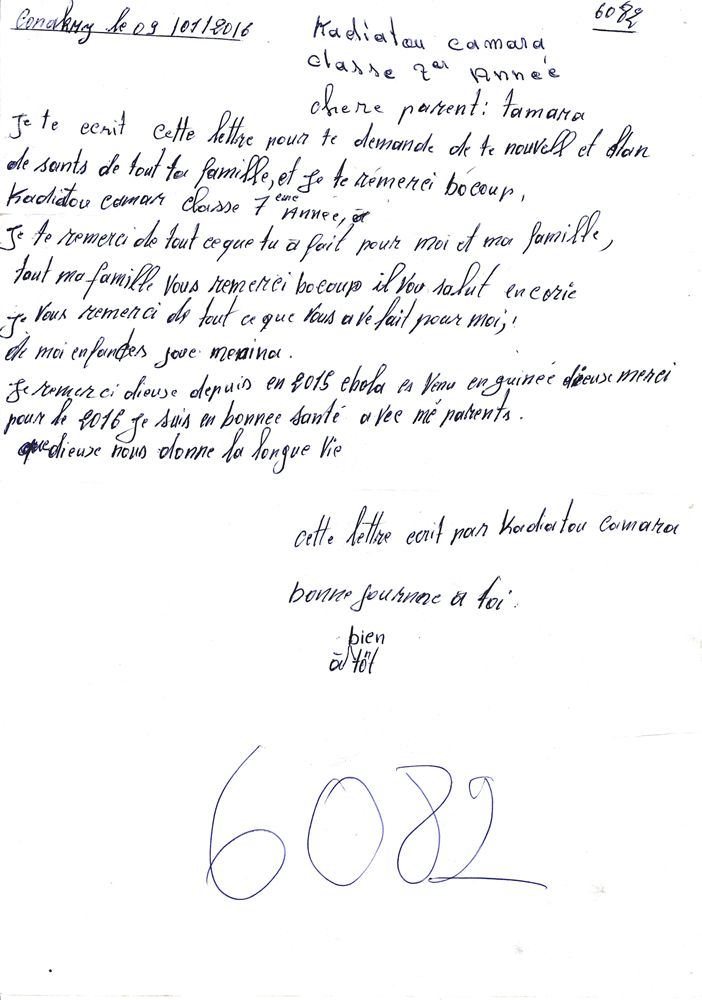 Conakry le 09 /01/2016
6082
Kadiatou camara
classe 7er Année
chere parent: tamara
Je te ecrit cette lettre pour te demande de te nouvell et
de sants de tout ta famille, et Je te remerci bocoup,
Kadiatou camar classe 7eme Année, a
Je te remerci de tout ceque tu a fait pour moi et ma famille,
tout ma famille vous remerici bocoup il vou salut encorie
je vous remerci de tout ce que vous ave fait pour moi,
de moi enfandes joue
Je remerci dieuse depuis en 2015 ebola es venu en guineé dieuse merci
pour le 2016 Je suis en bonnee santé avec mé parents.
que dieuse nous donne la longue vie
cette lettre ecrit par Kadiatou camara
bonne journee a toi.
bien
à tôt
6082